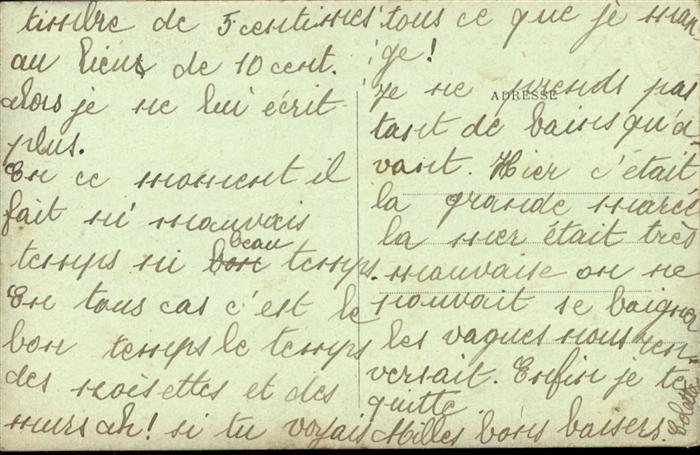 timbre de 5 centimes
au lieu de 10 cent.
alors je ne lui écrit
plus.
En ce moment il
fait ni mauvais
temps ni bon beau temps.
En tous cas c'est le
bon temps le temps
des noisettes et des
murs ah! si tu voyais
tous ce que je man-
ge!
ADRESSE
Je ne prends pas
tant de bains qu'a-
vant. Hier c'était
la grande maree
la mer était très
mauvaise on ne
pouvait se baigner
les vagues nous ren-
versait. Enfin je te
quitte.
Milles bons baisers.